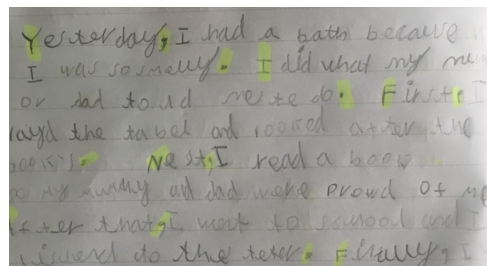 Yesterday, I had a bath because
I was so smelly. I did what my
or dad tould me to do. First,
the tabel and looked after the
Nest, I read a book
my mummy and dad were proud of me
after that, I went to school and I
to the . Finally, I